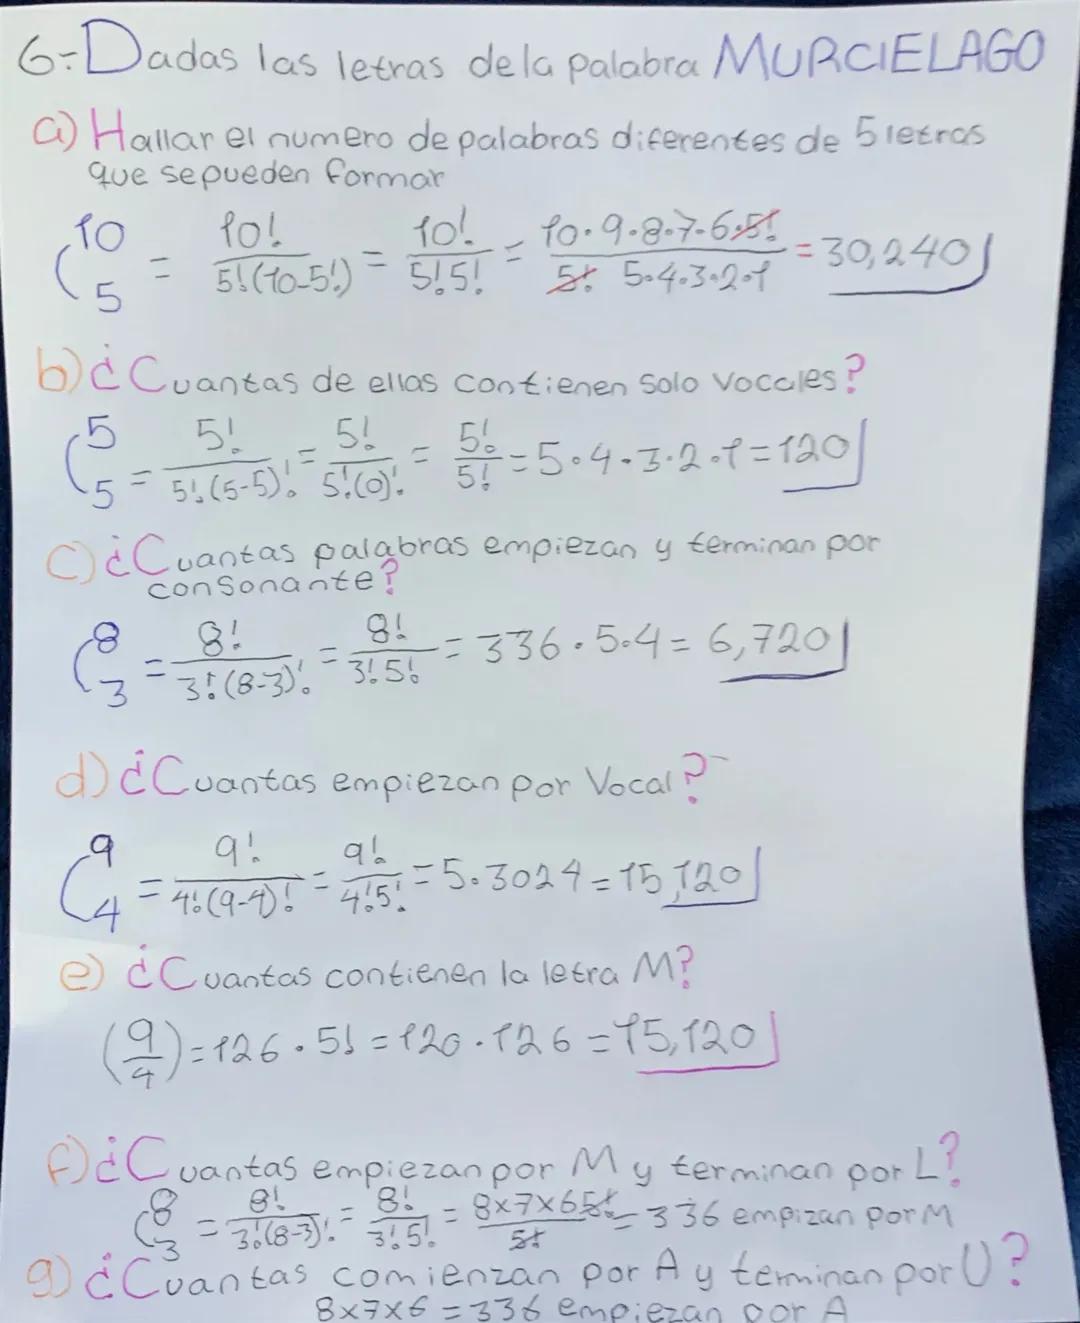 6.- Dadas las letras de la palabra MURCIELAGO
a) Hallar el numero de palabras diferentes de 5 letras
que se pueden formar
C 10 5 = 10! / 5!(10-5!) = 10! / 5!5! = 10·9·8·7·6·5! / 5! 5·4·3·2·1 = 30,240
b) ¿Cuantas de ellas contienen solo vocales?
C 5 5 = 5! / 5!(5-5)! = 5! / 5!(0)! = 5! / 5! = 5·4·3·2·1 = 120
c) ¿Cuantas palabras empiezan y terminan por
consonante?
C 8 3 = 8! / 3!(8-3)! = 8! / 3!5! = 336·5·4 = 6,720
d) ¿Cuantas empiezan por Vocal?
C 9 4 = 9! / 4!(9-4)! = 9! / 4!5! = 5·3024 = 15,120
e) ¿Cuantas contienen la letra M?
(9/4) = 126·5! = 120·126 = 15,120
f) ¿Cuantas empiezan por M y terminan por L?
C 8 3 = 8! / 3!(8-3)! = 8! / 3!5! = 8x7x6 5! / 5! = 336 empizan por M
g) ¿Cuantas comienzan por A y terminan por U?
8x7x6 = 336 empiezan por A